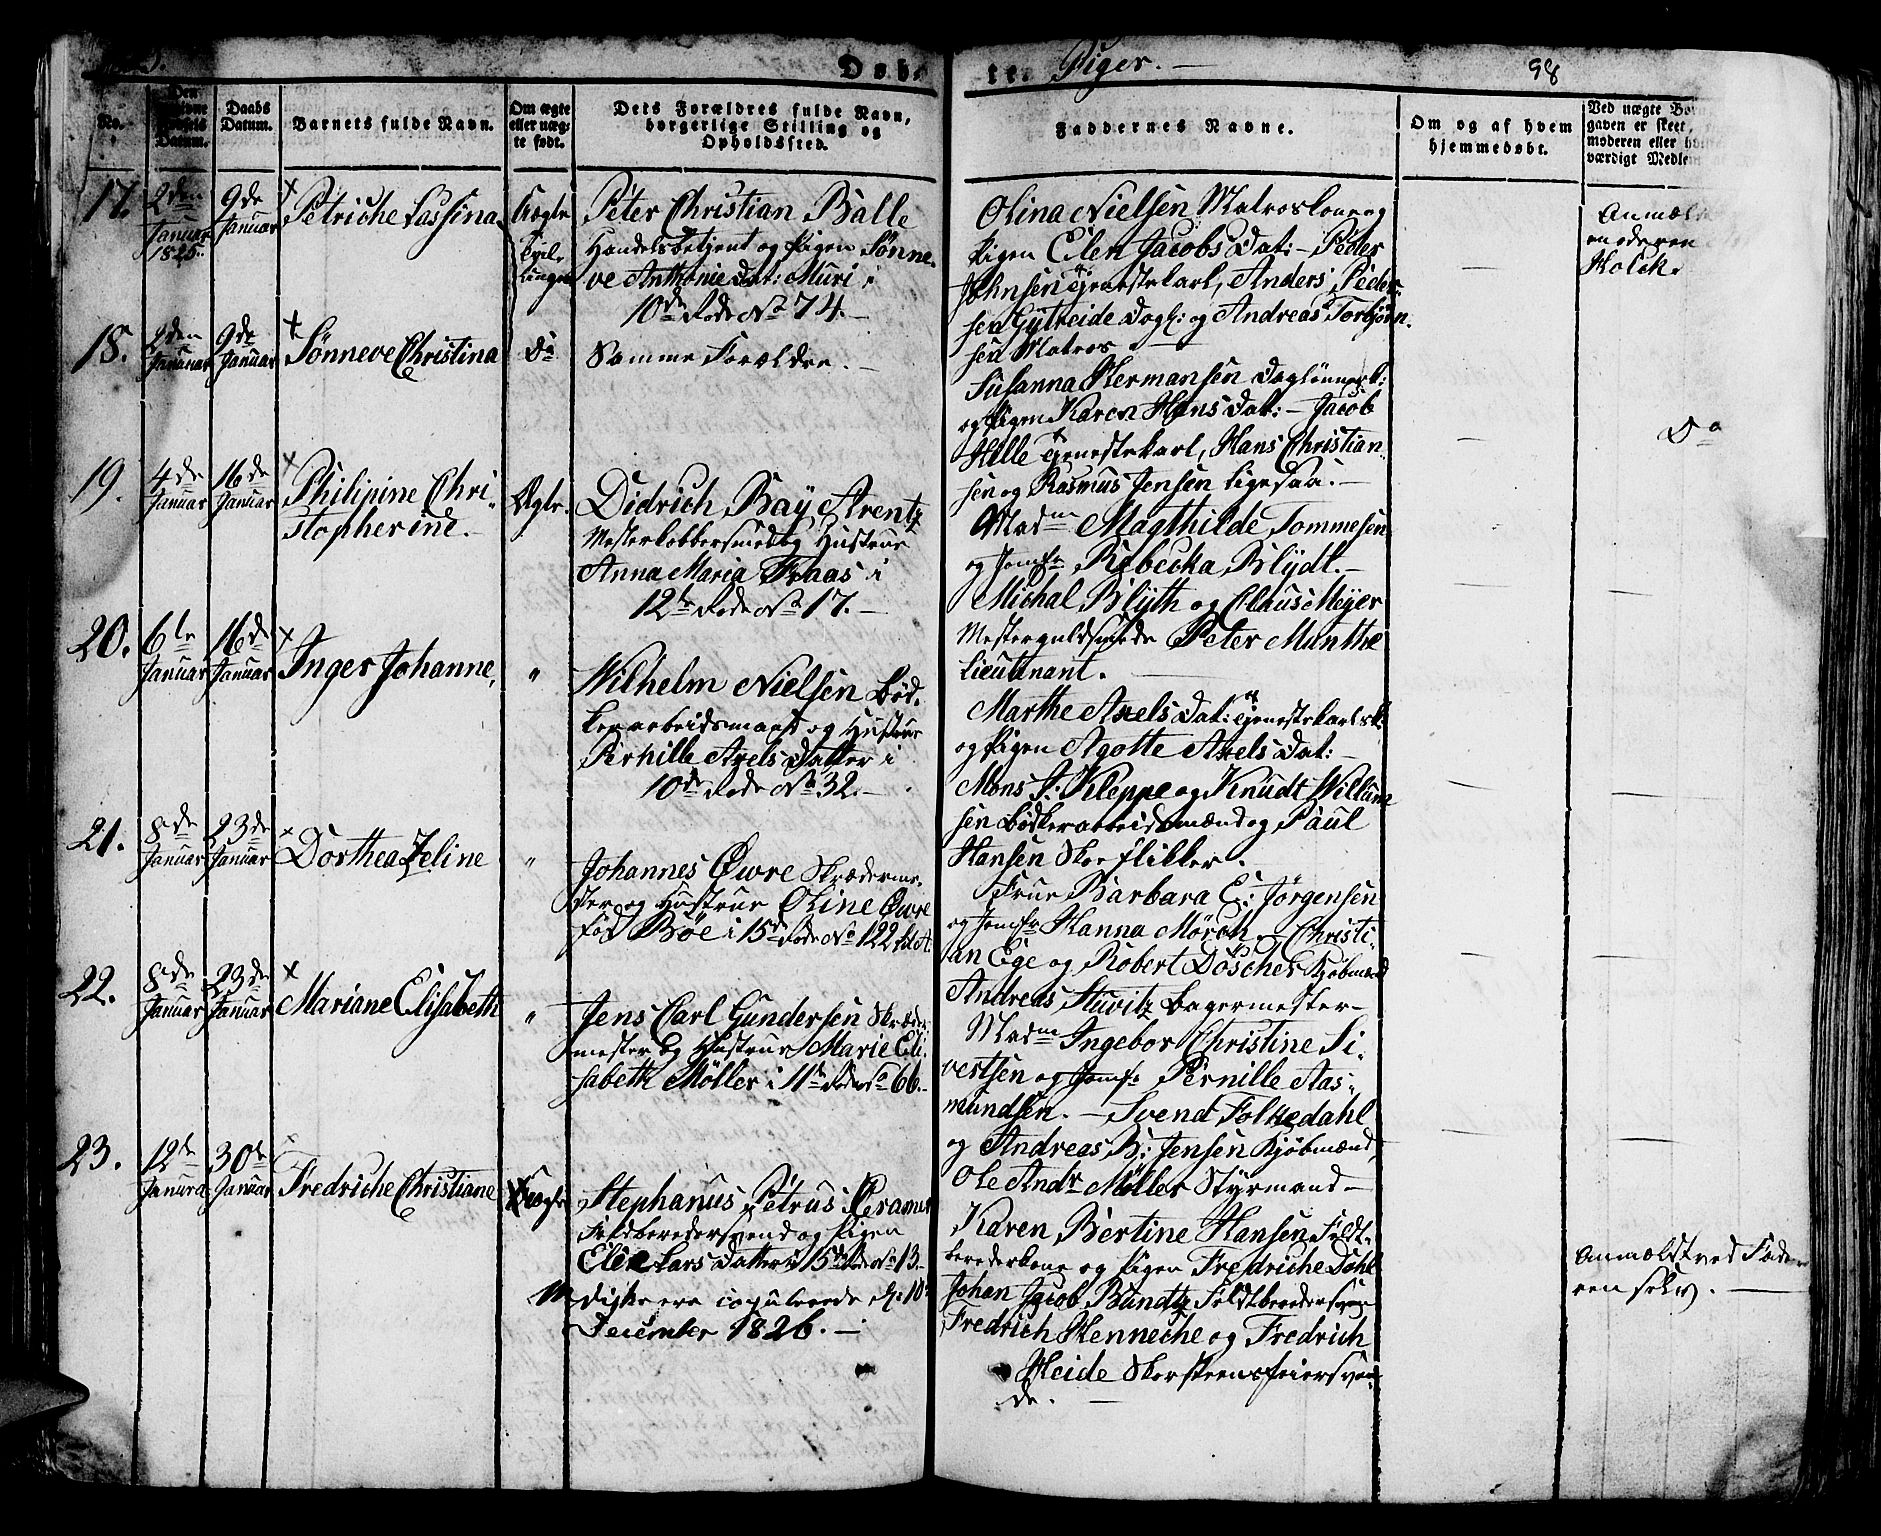 Døb
te Piger. —
98
No.
Den
Datum.
Daabs
Datum.
Barnets fulde Navn.
Om ægte
eller uæg-
te født.
Dets Forældres fulde Navn,
borgerlige Stilling og
Opholdssted.
Faddernes Navne.
Om og af hvem
hjemmedøbt.
Ved uægte
gaven er skeet,
moderen eller
værdigt Medlem af
17.
2den
Januar
1825.
9de
Januar
Petriche Lassina
Uægte
Tvil-
linger
Peter Christian Balle
Handelsbetjent og Pigen Sønne-
ve Anthonie Dat: Muri i
10de Rode No 74. —
Olina Nielsen Matroskone og
Pigen Elen Jacobs Dat: – Peder
Johnsen Tjenestekarl, Anders Peder-
sen Gytreide Dagl: og Andreas Torbjørn-
sen Matros —
Anmeldt
moderen
Holck
18.
2den
Januar
9de
Januar
Sønneve Christina
Do
Samme Forældre. —
Susanna Hermansen Dagлönner k:
og Pigen Karen Hans Dat: – Jacob
Hille Tjenestekarl, Hans Christian-
sen og Rasmus Jensen ligesaa. —
Do
19.
4de
Januar
16de
Januar
Philipine Chri-
stopherine. —
Ægte.
Didrich Bay Arentz
Mesterkobbersmed og Hustrue
Anna Maria Fraas i
12te Rode No 17. —
Madme Magthilde Tommesen
og Jomfr Rebecka Blydt. —
Michal Blyth og Claus Meyer
Mesterguldsmede Peter Munthe
Lieutnant. —
20.
6te
Januar
16de
Januar
Inger Johanne,
"
Wilhelm Nielsen Bød-
kerarbeidsmand og Hustrue
Pernille Axels Datter i
10de Rode No 32. —
Marthe Axels Dat: Tjenestekarls k:
og Pigen Agotte Axels Dat:
Mons J: Kleppe og Knudt Willum-
sen Bødkerarbeidsmænd og Paul
Hansen Skoeflikker.
21.
8de
Januar
23de
Januar
Dorthea Zeline
"
Johannes Øwre Skrædermes-
ter og Hustrue Oline Øwre
fød Bøe i 15de Rode No 122 Lit A.
Frue Barbara E: Jørgensen
og Jomfr Hanna Mörch – Christi-
an Ege og Robert Döscher Kjøbmænd
Andreas Stuwitz Bagermester —
22.
8de
Januar
23de
Januar
Mariane Elisabeth
"
Jens Carl Gundersen Skræder-
mester og Hustrue Marie Eli-
sabeth Møller i 11te Rode No 66. —
Madme Ingebor Christine Si-
vertsen og Jomfr Pernille Aas-
mundsen. — Svend Folkedahl
og Andreas B: Jensen Kjøbmænd,
Ole Andr Møller Styrmand —
23.
12te
Janura
30te
Januar
Fredriche Christiane
Uægte
Stephanus Petrus Cramer
Feldberedersvend og Pigen
Elie Lars Datter i 15de Rode No 13.
Disse ere copulerede d: 10
December 1826. —
Karen Bertine Hansen Feldt-
berederkone og Pigen Fredriche Dahl
Johan Jacob Bundtz Feldtberedersven
Fredrich Henneche og Fredrich
Heide Skorsteensfeiersven-
de. —
Anmeldt ved Fade-
ren selv. —